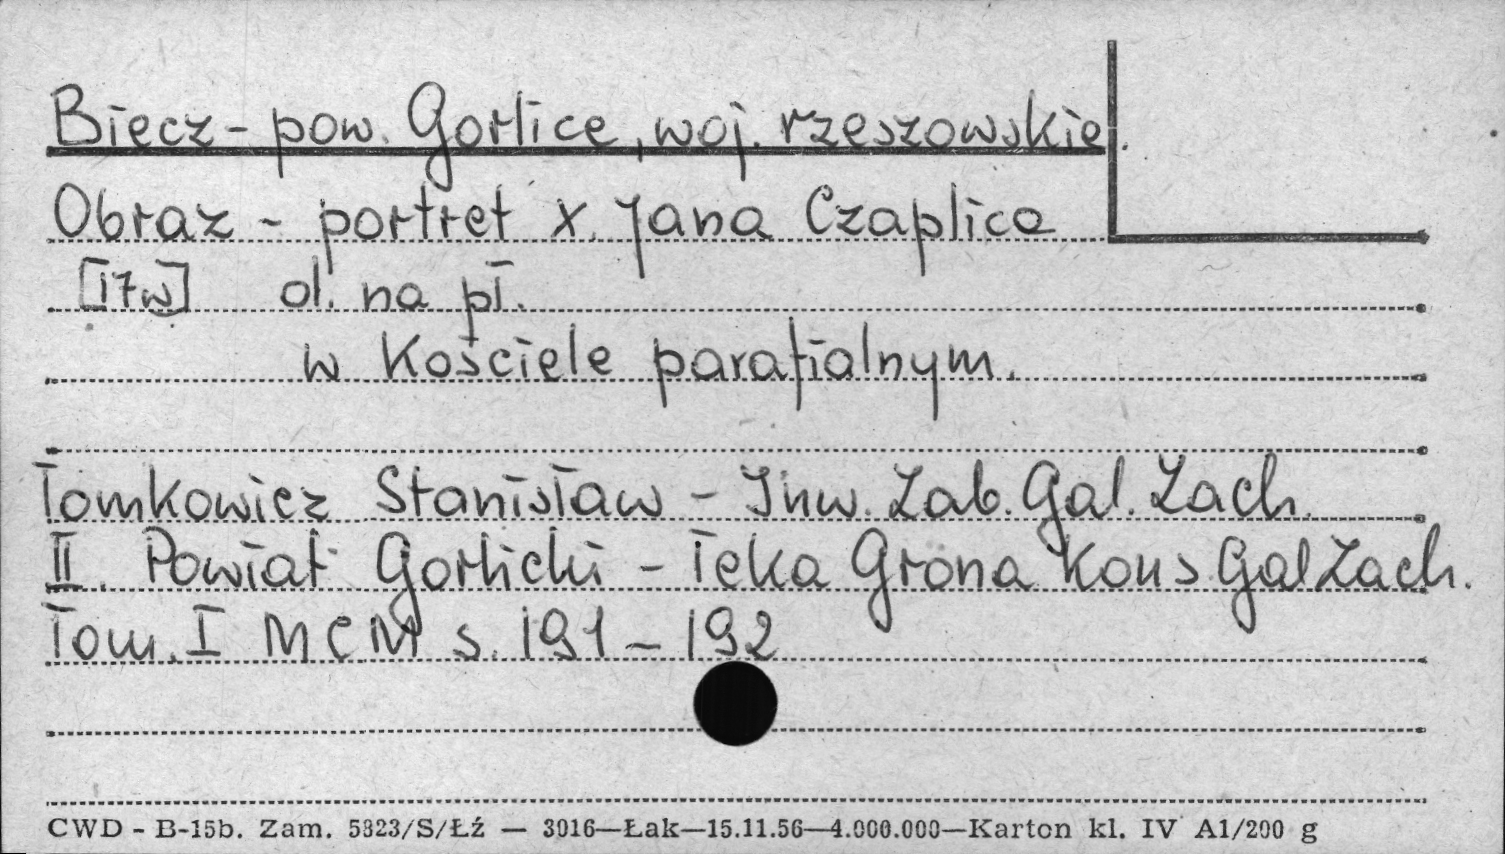 Biecz - pow. Gorlice, woj. rzeszowskie.
Obraz - portret x. Jana Czaplica
[17w] ol. na pł.
w Kościele parafialnym.
Tomkowicz Stanisław - Inw. Zab. Gal. Zach.
II. Powiat Gorlicki - Teka Grona Kons Gal Zach.
Tom. I MCM s. 191 - 192
CWD - B-15b. Zam. 5823/S/Łź — 3016—Łak—15.11.56—4.000.000—Karton kl. IV A1/200 g